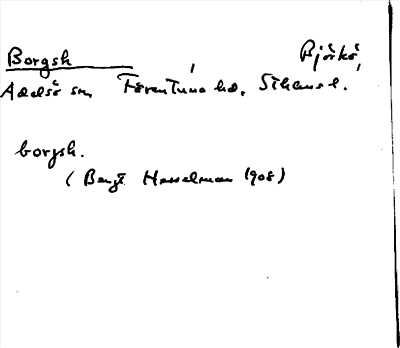 Borgsh Björkö,
Adelsö sn, Färentuna hd, Sthms l.
borgsh.
( Bengt Hesselman 1908 )